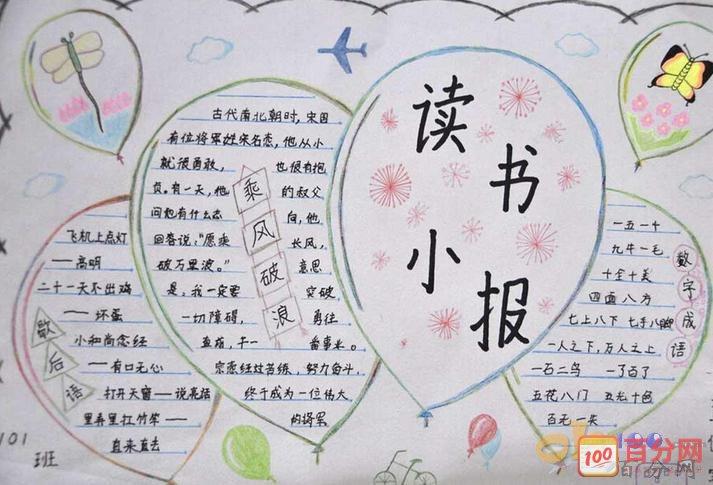 读书
小报
古代南北朝时，宋国
有位将军姓宗名悫，他从小
就很勇敢，也很有抱
负，有一天，他的叔父
问他有什么志向，他
回答说，“愿乘长风，
破万里浪。”意思
是：我一定要突破，
一切障碍，勇往
直前，干一番事业。
宗悫经过苦练，努力奋斗，
终于成为一位伟大
的将军
乘风破浪
飞机上点灯
——高明
二十一天不出鸡
——坏蛋
小和尚念经
——有口无心
打开天窗——说亮话
里弄里扛竹竿——
直来直去
歇后语
一五一十
九牛一毛
十全十美
四面八方
七上八下 七手八脚
一人之下，万人之上
一石二鸟 一了百了
五花八门 五光十色
百无一失
数字成语
101
班
100
百分网